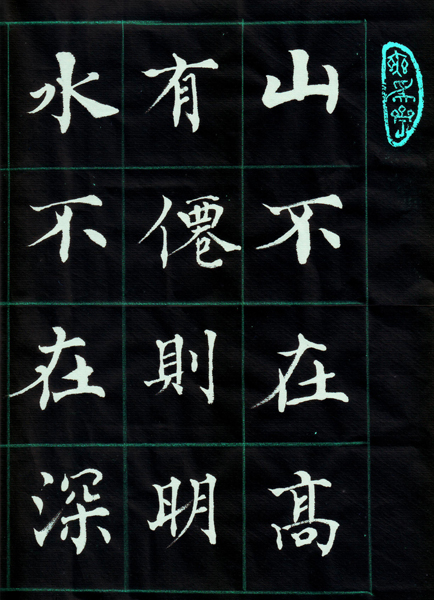 山不在高
有僊則明
水不在深